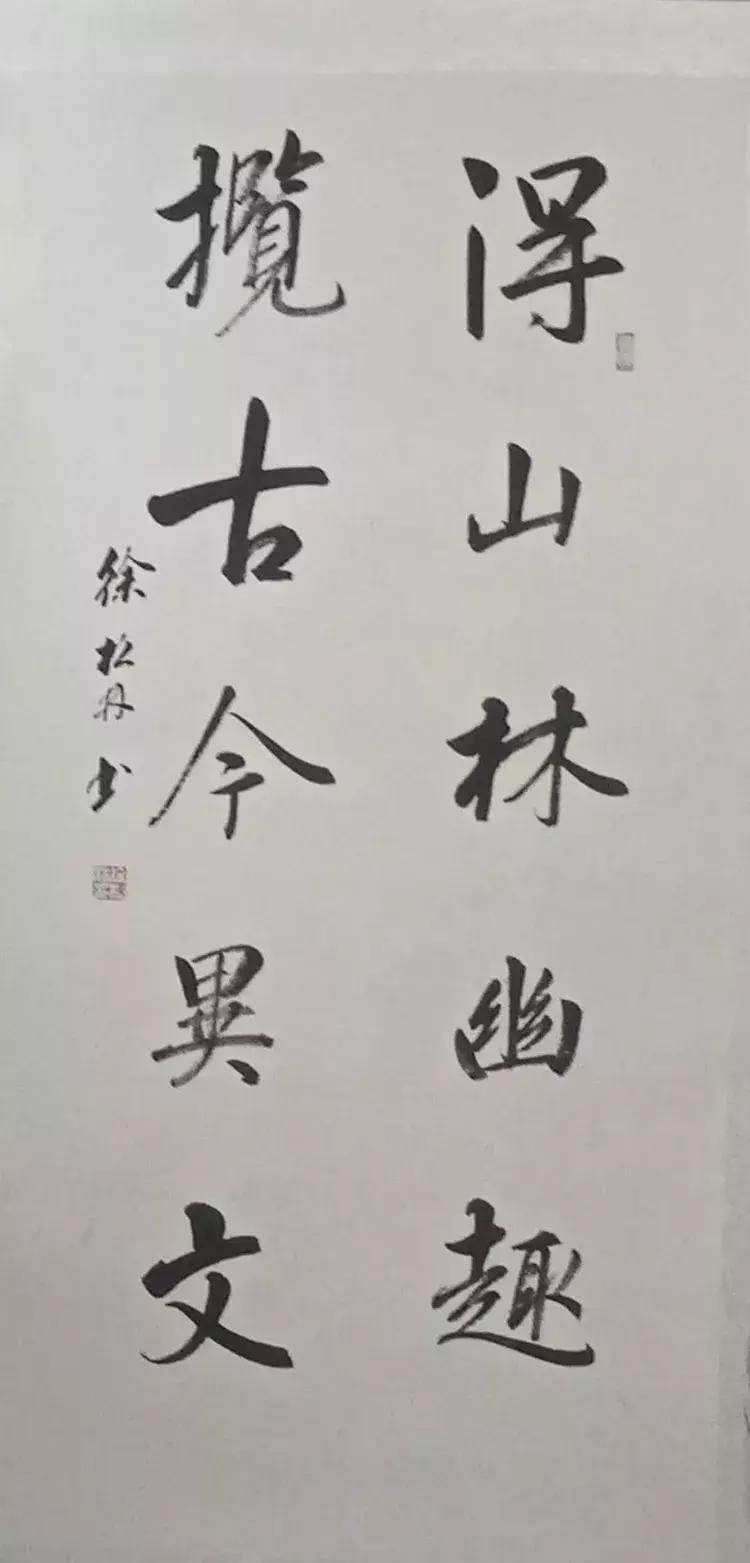 得山林幽趣
攬古今異文
徐松丹书